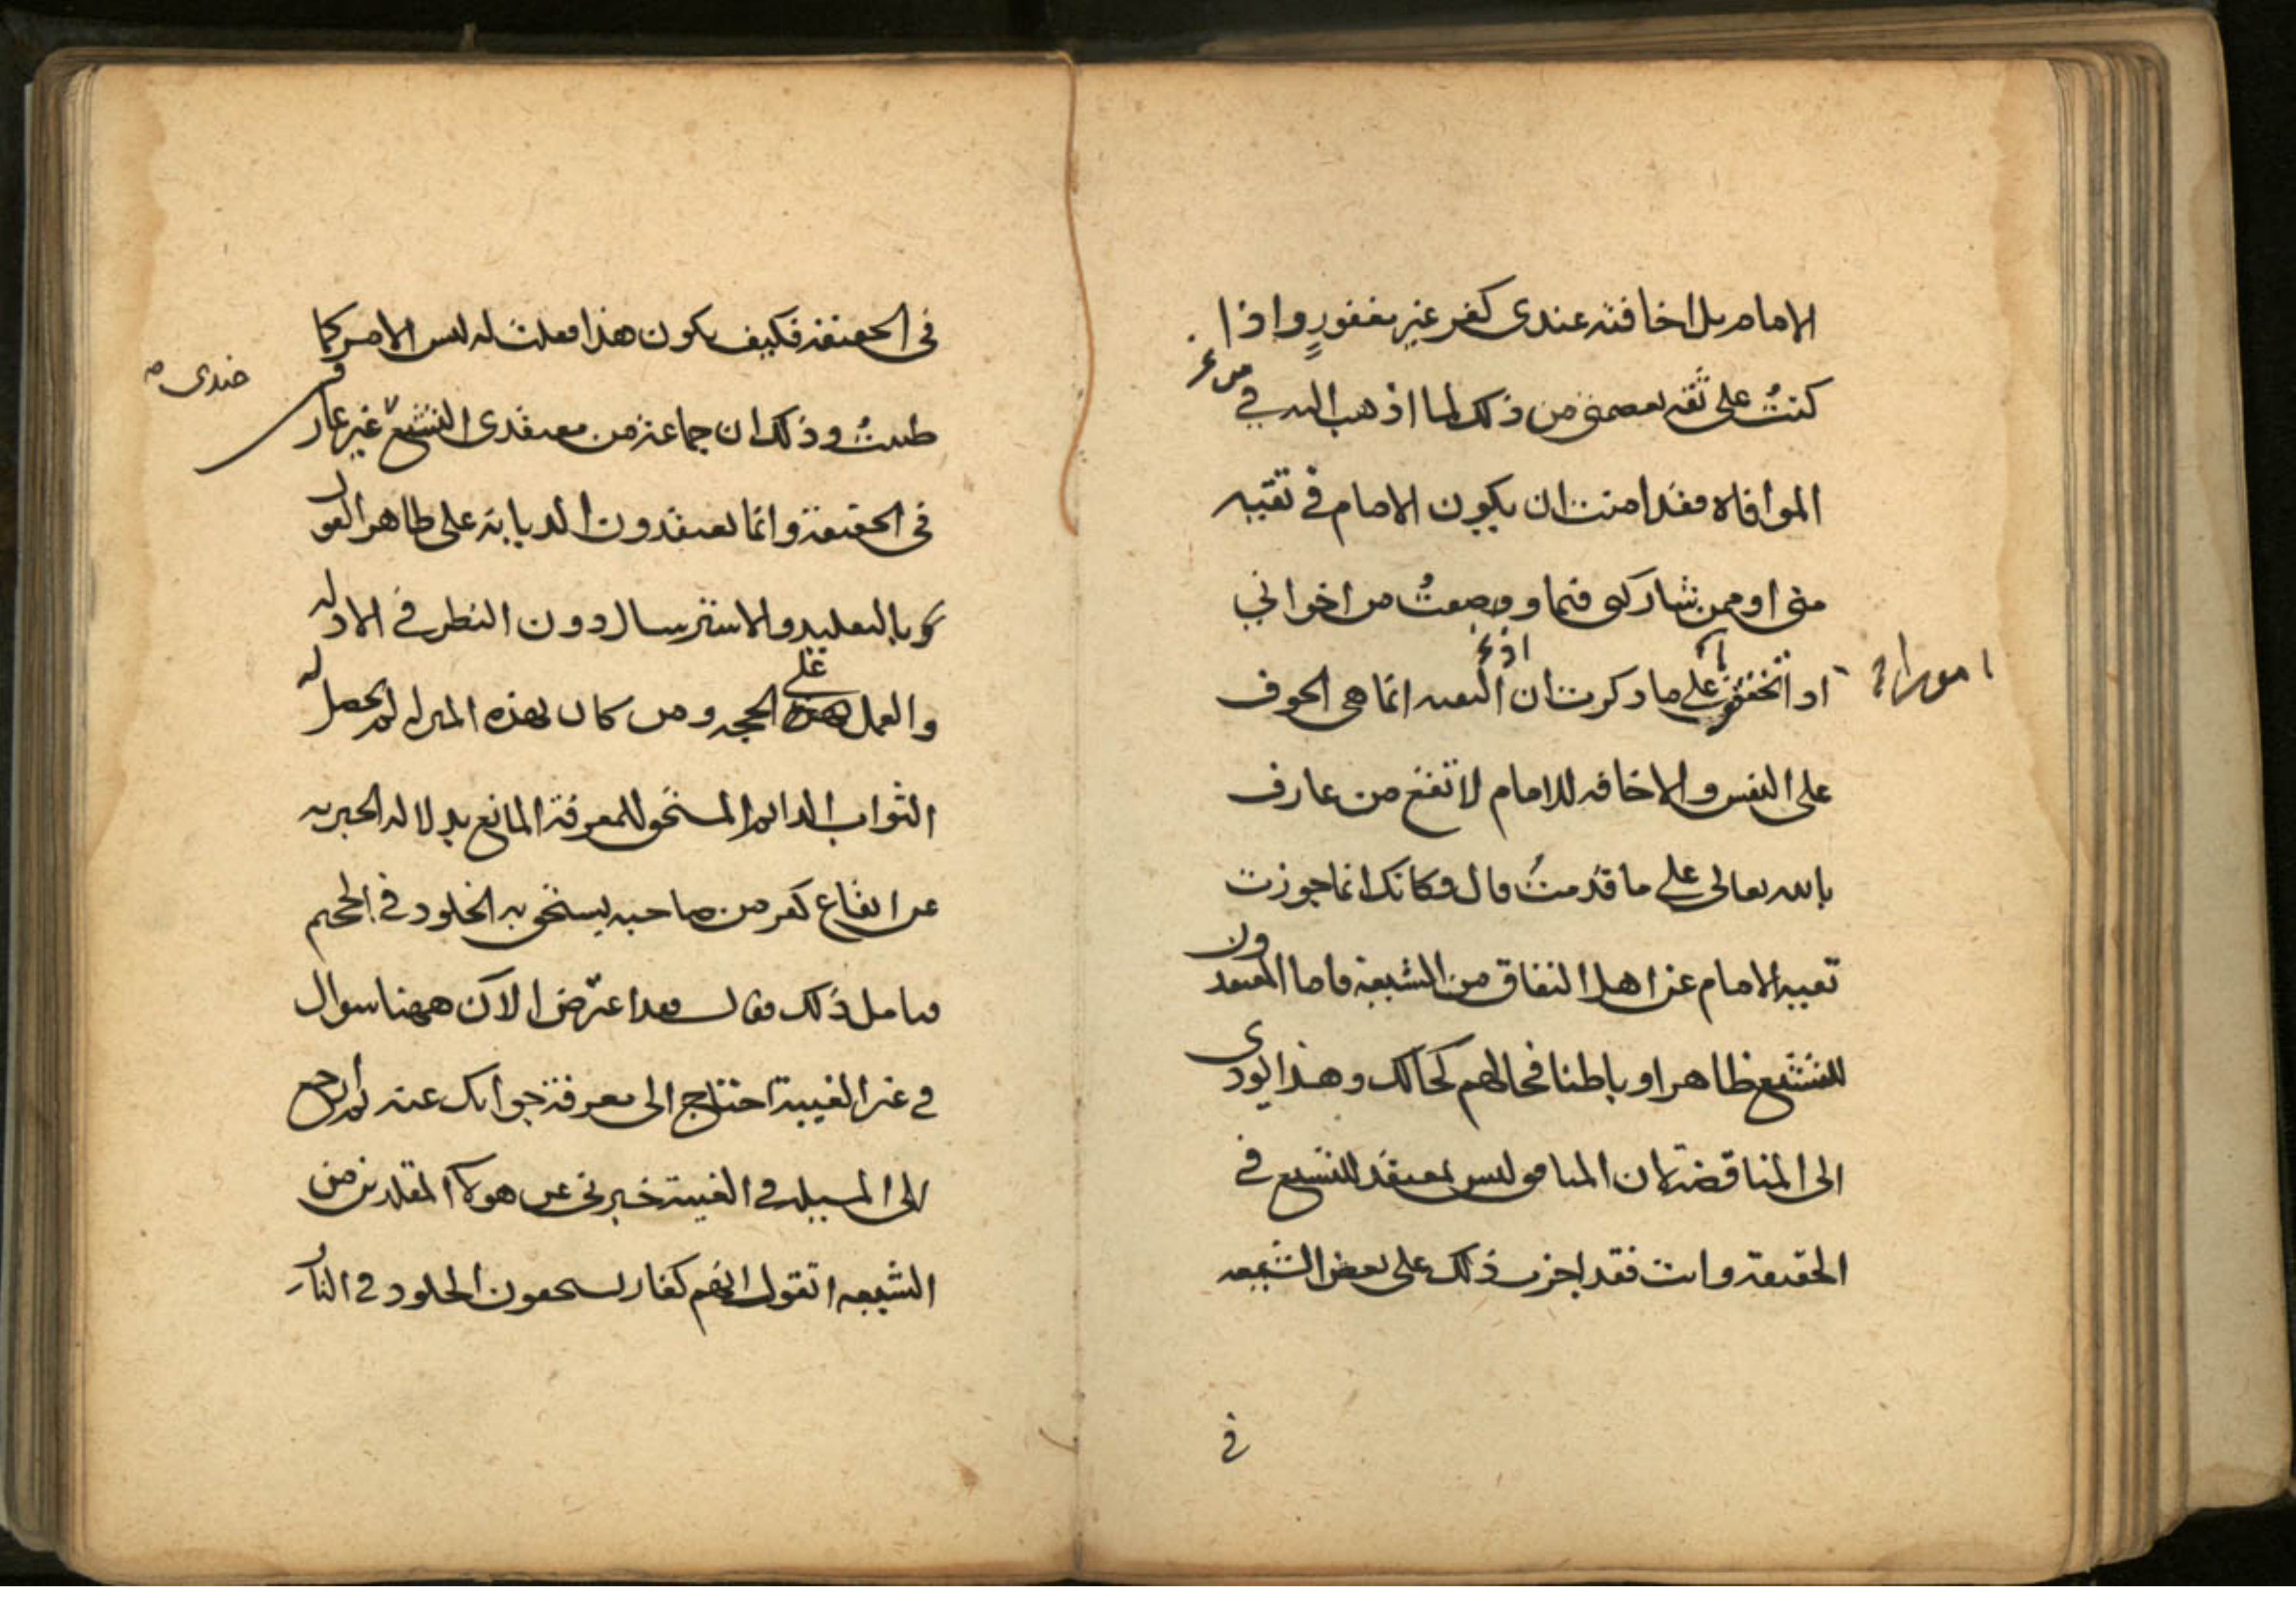 الامام بل اخافته عندى كفر غير مغفور واذا
كنتُ على ثقه بعصمتى من ذلك لما اذهب اليه في
الموافاه فقد امنت ان يكون الامام في تقيه
منى او ممن شاركنى فيما وصفتُ من اخواني
او تحققى على ما ذكرت ان التقيه انما هى الخوف
على النفس والاخافه للامام لا تقع من عارف
بالله تعالى على ما قدمتُ قال فكانك انما جوزت
تقيه الامام عن اهل النفاق من الشيعة فاما المعتقدون
للتشيع ظاهرا وباطنا فحالهم كحالك وهذا يودى
الى المناقضة لان المنافق ليس بمعتقد للتشيع في
الحقيقة وانت فقد اجزت ذلك على بعض الشيعه
في
في الحقيقة فكيف يكون هذا فقلت له ليس الامر كما
ظننتُ وذلك ان جماعة من معتقدى التشيع غير عارف
عندى
في الحقيقة وانما يعتقدون الديانة على ظاهر القول
بالتقليد والاسترسال دون النظر في الادله
والعمل على الحجه ومن كان بهذه المنزله لم يحصل له
الثواب الدايم المستحق للمعرفة المانع بدلاله الخبر به
عن ايقاع كفر من صاحبه يستحق به الخلود في الجحيم
فتامل ذلك فقال فقد اعترض الان ههنا سوال
في غير الغيبة احتاج الى معرفة جوابك عنه ثم ارجع
الى المسيله في الغيبة خبرنى عن هولا المقلدين من
الشيعه اتقول انهم كفار يستحقون الخلود في النار